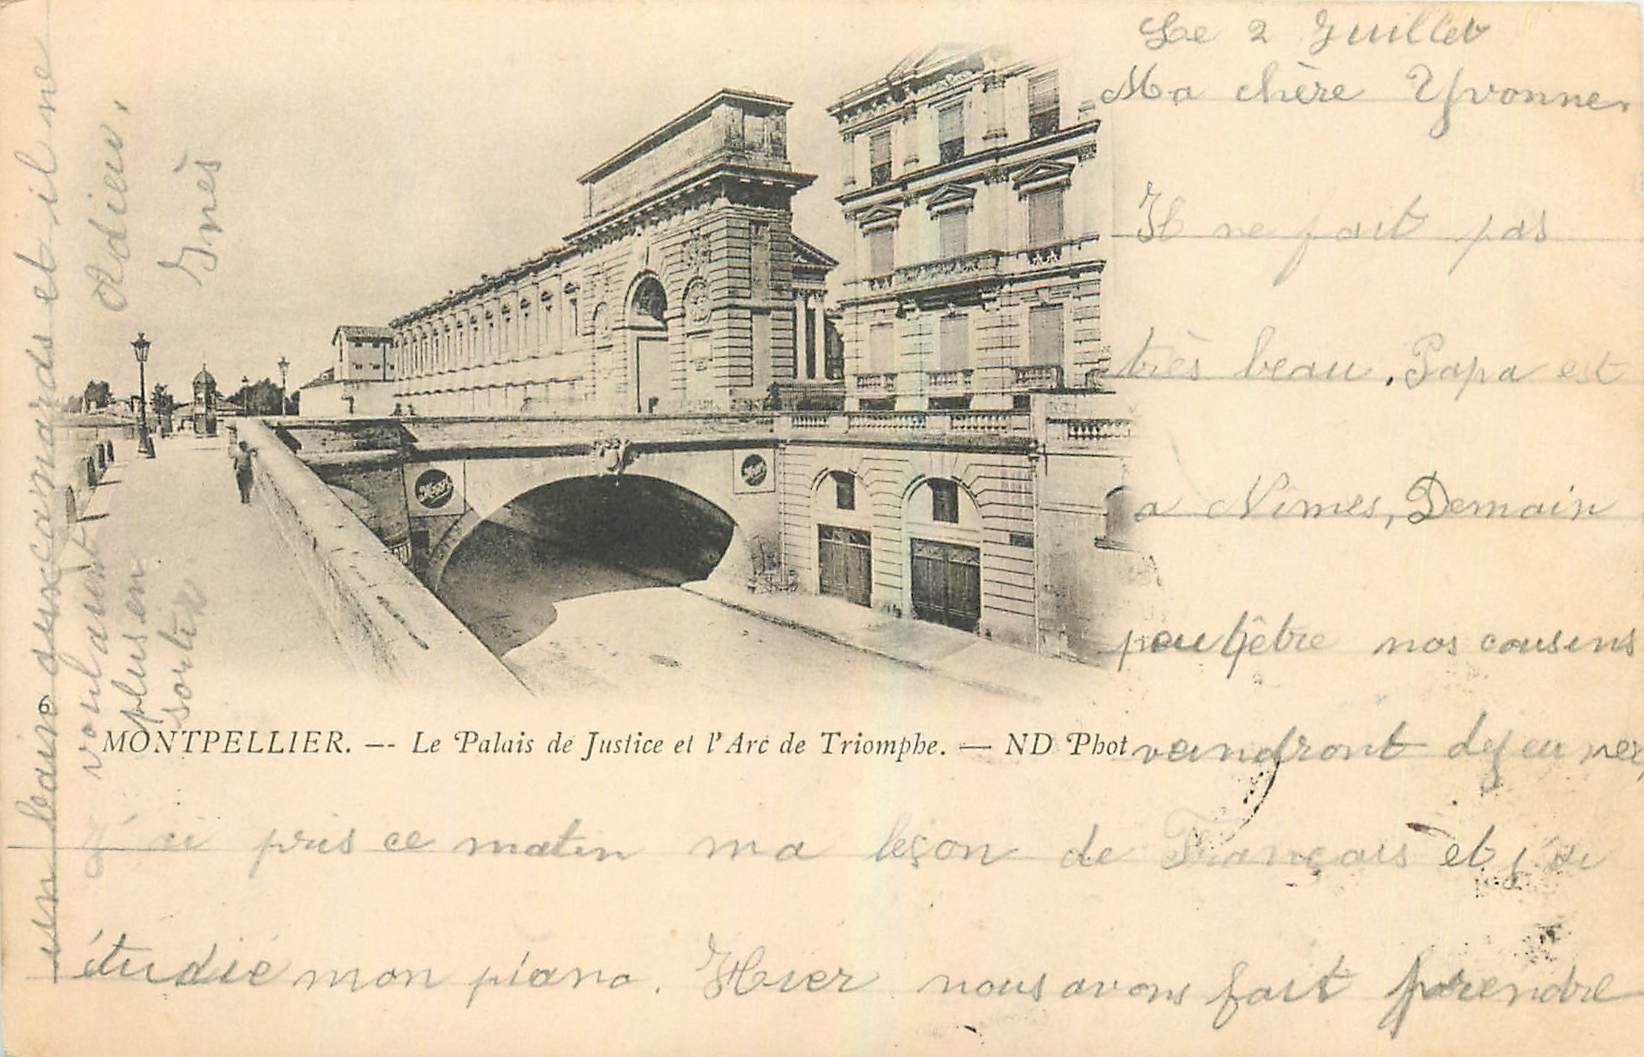 Le 2 Juillet
Ma chère Yvonne,
Il ne fait pas
très beau. Papa est
a Nimes, Demain
peut être nos cousins
veindront dejeuner,
J'ai pris ce matin ma leçon de Français et j'ai
étudié mon piano. Hier nous avons fait prendre
un bain aux canards et il ne
voulaient
plus en
sortir.
Adieu,
Inès
MONTPELLIER. -- Le Palais de Justice et l'Arc de Triomphe. — ND Phot
6